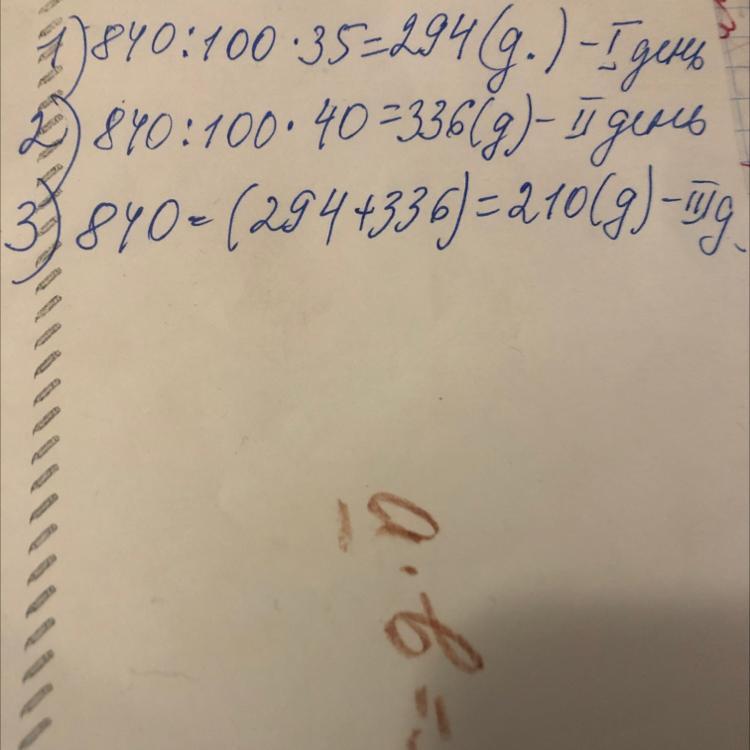 1) 840:100·35=294(д.) - I день
2) 840:100·40=336(д) - II день
3) 840-(294+336)=210(д) - III д.
a · b =